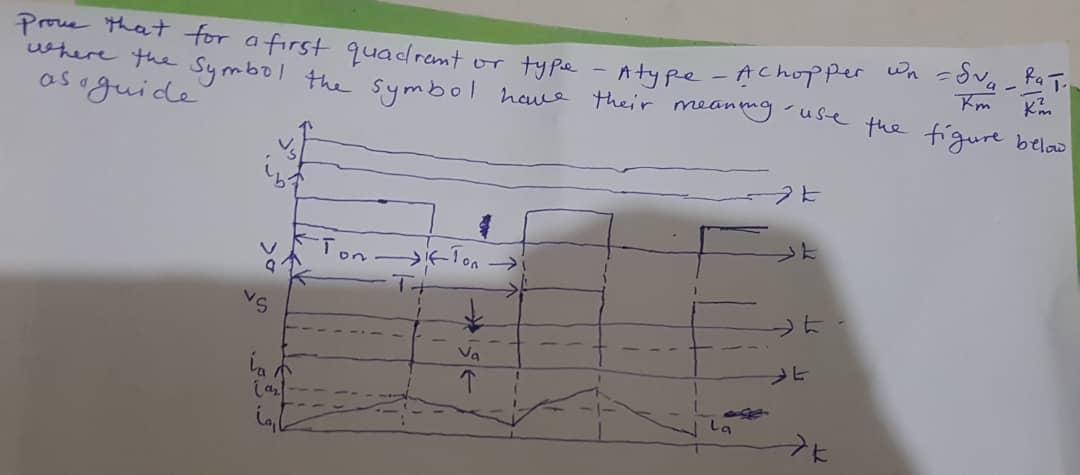 Prove that for a first quadrant or type - A type - A chopper ωn = δVa/Km - Ra/K²m T.
where the symbol the symbol have their meaning - use the figure below
as a guide
Vs
t
ib
t
Ton
Ton
T
Va
Vs
t
Va
t
ia
ia2
ia1
ia
t